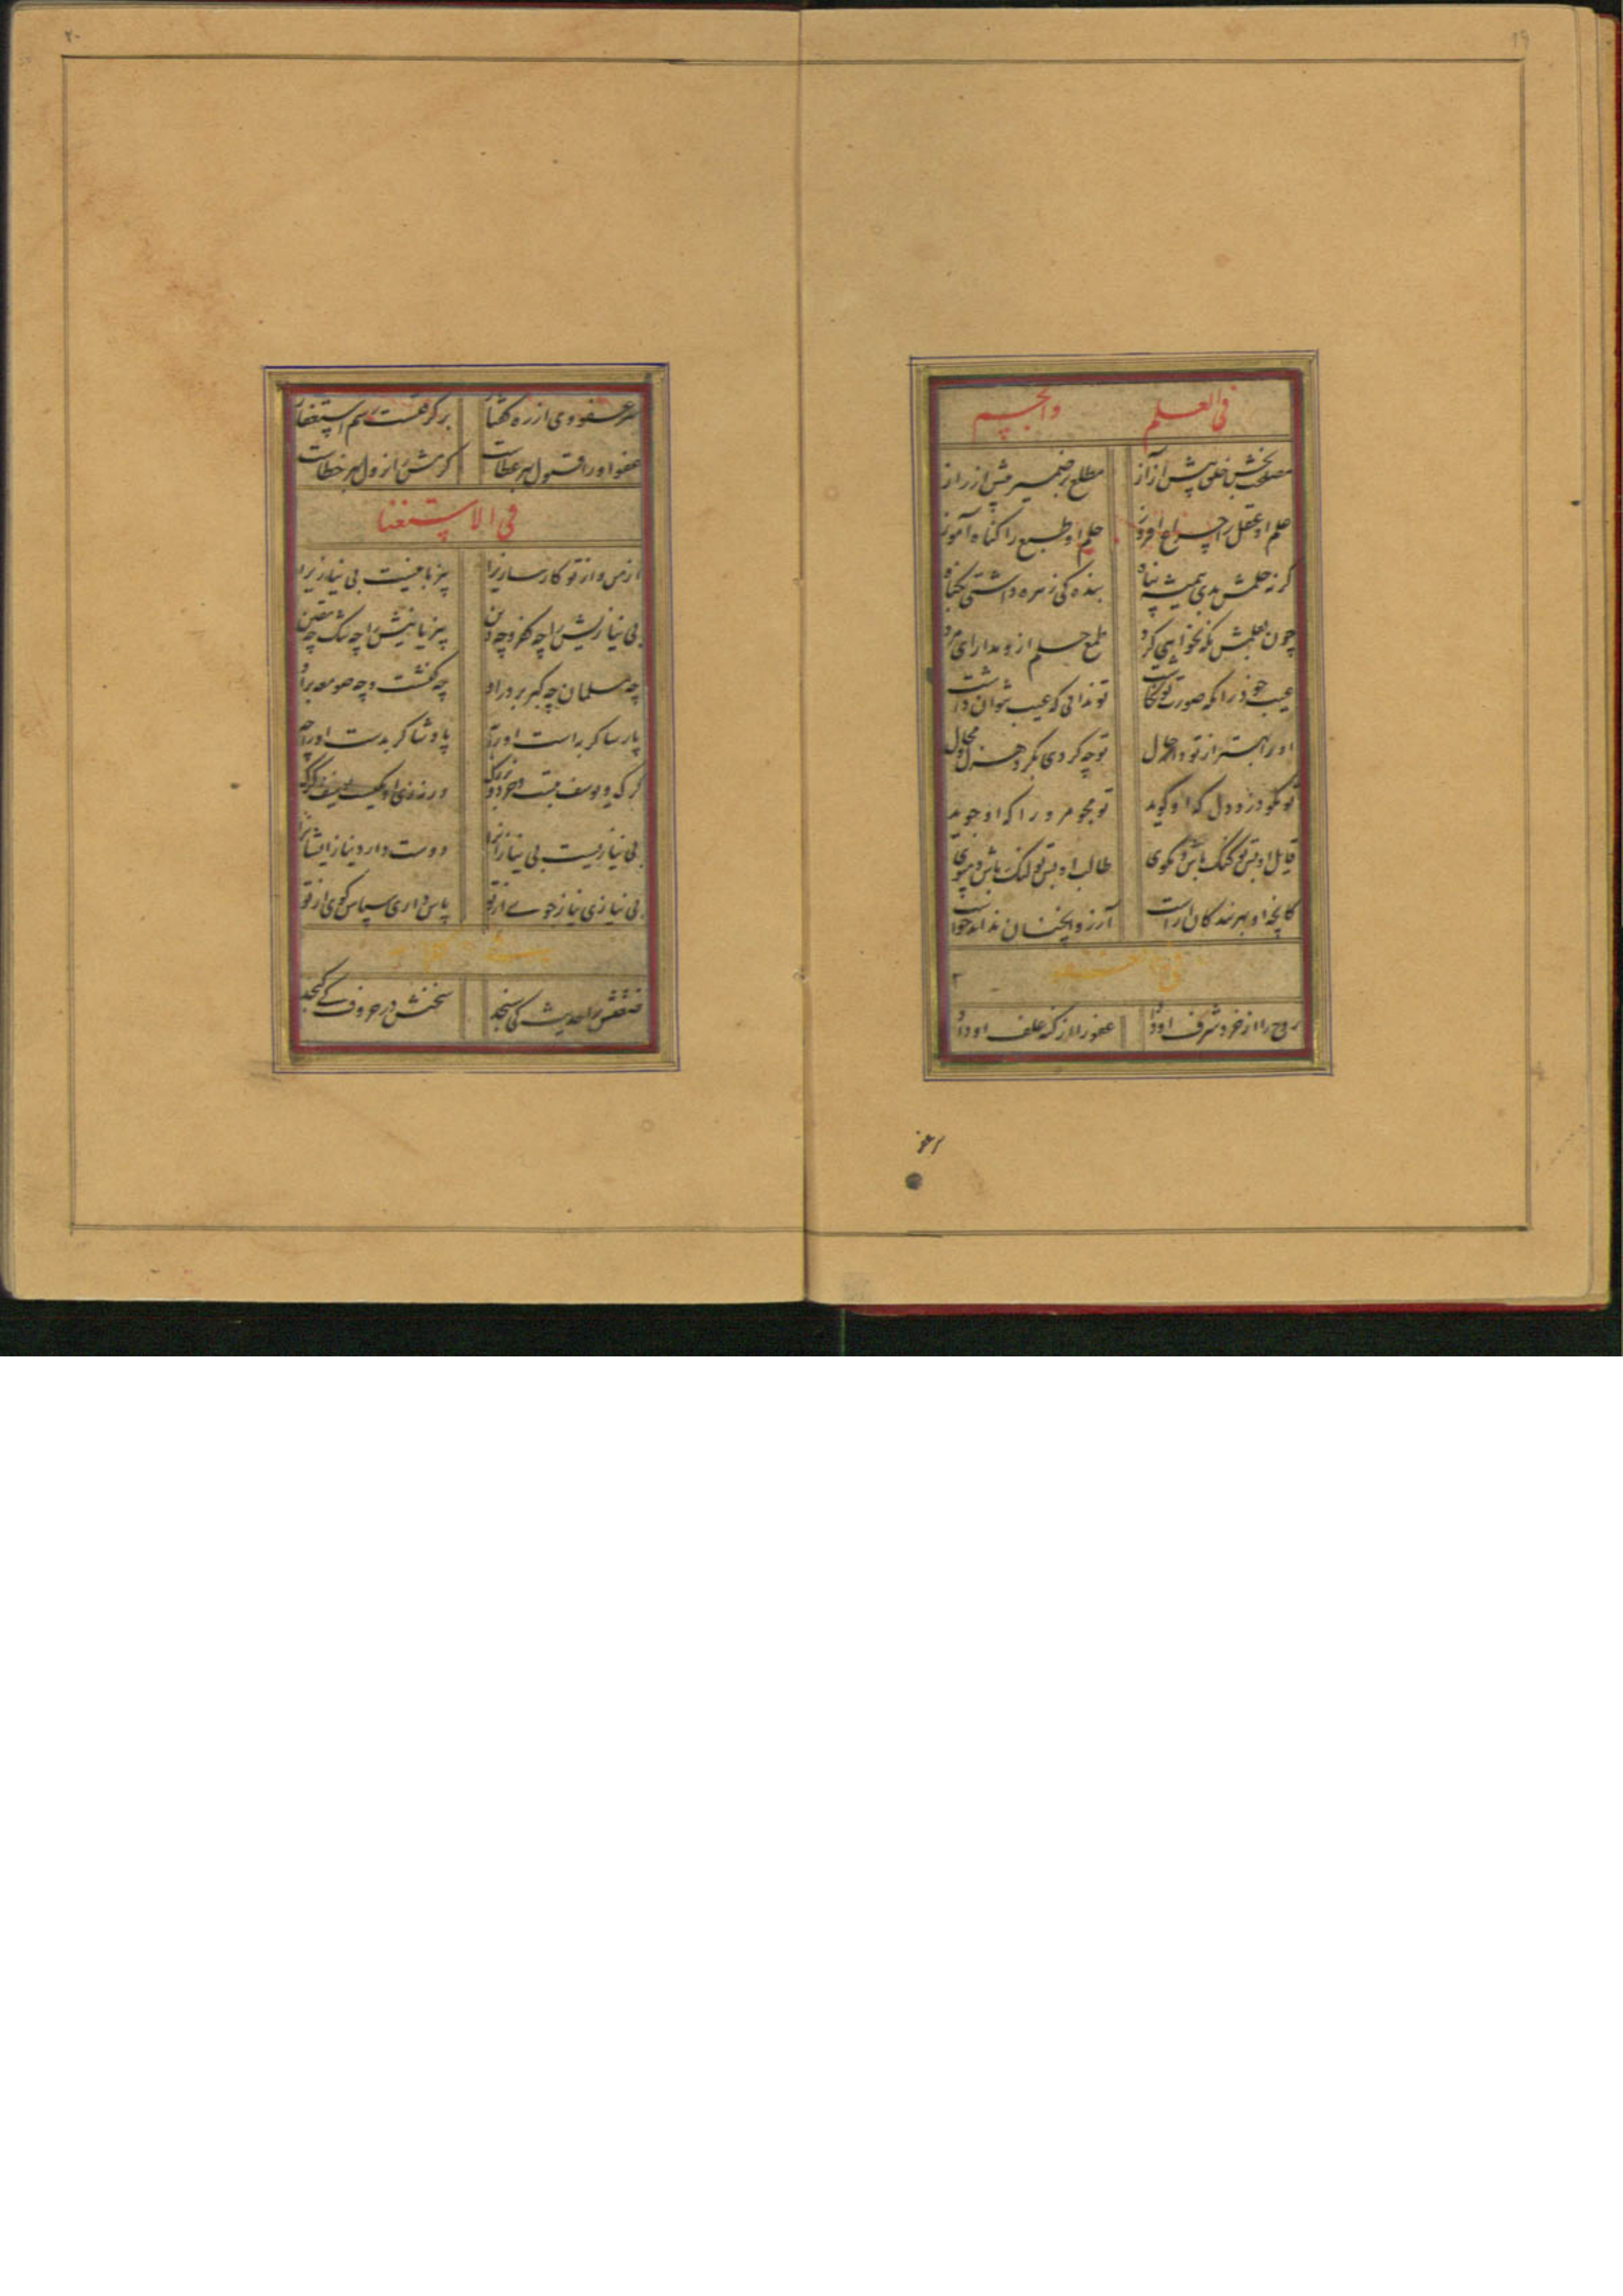 ۱۹
فی العلم والحلم
مصلحت بخش خلق پیش از آز مطلع بر ضمیر پیش از راز
علم او عقل را چراغ افروز حلم او طبع را گناه آموز
گر نه حلمش بدی همیشه پناه بنده کی زهره داشتی بگناه
چون بعلمش نکو نخواهی کرد طمع حلم ازو مدار ای مرد
عیب خود را که صورت تو نگاشت تو ندانی که عیب نتوان داشت
او ترا بهتر از تو داند حال تو چه گردی بگرد هزل و محال
تو مگو درد دل که او گوید تو مجو مر ورا که او جوید
قایل او بس تو گنگ باش و مگوی طالب او بس تو لنگ باش و مپوی
کانچه او بهر بندگان آراست آرزو آنچنان نداند خواست
روح را از خرد شرف او داد عفو را از گنه علف او داد
سر عفو
۲۰
سر عفو وی از ره گفتار بر گرفتست رسم استغفار
عفو او را قبول بهر عطاست کرمش را نزول بهر خطاست
فی الاستغنا
از من و از تو کارسازیرا بیز ما نیست بی نیازیرا
بی نیازیش را چه کفر و چه دین بی زبانیش را چه شک چه یقین
چه مسلمان چه گبر بر در او چه کنشت و چه صومعه بر او
پارسا گر بد است او را چه پادشا گر بدست او را چه
گرگ و یوسف بتست خرد و بزرگ ور نه زی او یکیست یوسف و گرگ
بی نیازیست بی نیازانرا دوست دارد نیاز ایشانرا
بی نیازی نیاز جوی از تو پاس داری سپاس گوی از تو
صفتش را حدیث کی سنجد سخنش در حروف کی گنجد